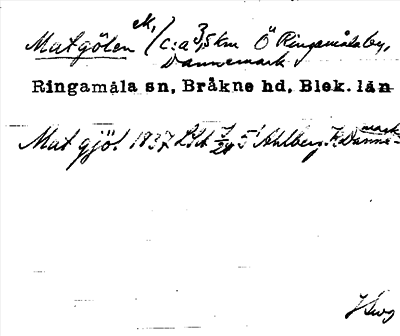 Matgölen ek, / c:a 3,5 km Ö Ringamålaby,
Dannemark
Ringamåla sn, Bråkne hd, Blek. län
Mat gjöl 1837 7/24 5 Ahlberg. Danne-
mark